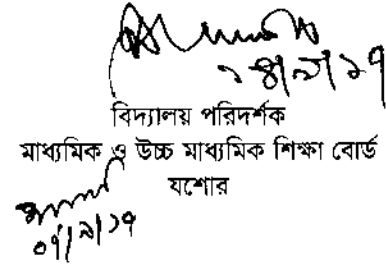 ১৪/৯/১৭
বিদ্যালয় পরিদর্শক
মাধ্যমিক ও উচ্চ মাধ্যমিক শিক্ষা বোর্ড
যশোর
০৭/৯/১৭